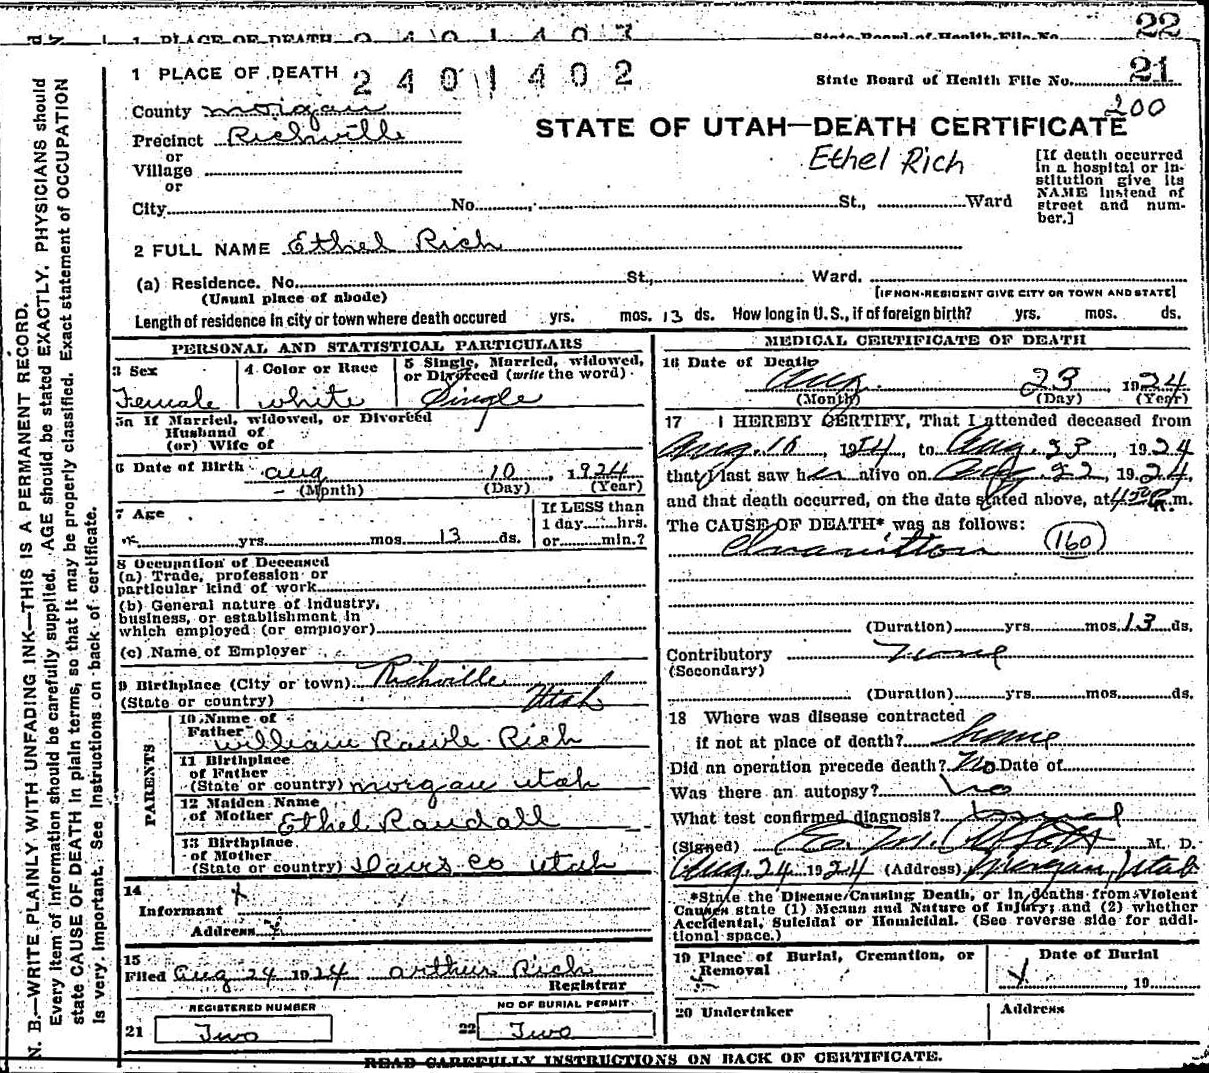 22
1 PLACE OF DEATH 2 4 0 1 4 0 3 State Board of Health File No.
1 PLACE OF DEATH 2 4 0 1 4 0 2 State Board of Health File No. 21
200
County Morgan
STATE OF UTAH—DEATH CERTIFICATE
Precinct Richville
Ethel Rich
or
Village
or
City No. St., Ward
[If death occurred
in a hospital or in-
stitution give its
NAME instead of
street and num-
ber.]
2 FULL NAME Ethel Rich
(a) Residence. No. St., Ward.
(Usual place of abode) [IF NON-RESIDENT GIVE CITY OR TOWN AND STATE]
Length of residence in city or town where death occured yrs. mos. 13 ds. How long in U. S., if of foreign birth? yrs. mos. ds.
PERSONAL AND STATISTICAL PARTICULARS
3 Sex
Female
4 Color or Race
white
5 Single, Married, widowed,
or Divorced (write the word)
Single
5a If Married, widowed, or Divorced
Husband of
(or) Wife of
6 Date of Birth aug 10, 1924
(Month) (Day) (Year)
7 Age
yrs. mos. 13 ds.
If LESS than
1 day hrs.
or min.?
8 Occupation of Deceased
(a) Trade, profession or
particular kind of work
(b) General nature of industry,
business, or establishment in
which employed (or employer)
(c) Name of Employer
9 Birthplace (City or town) Richville
(State or country) Utah
PARENTS
10 Name of
Father William Rawle Rich
11 Birthplace
of Father
(State or country) morgan utah
12 Maiden Name
of Mother Ethel Randall
13 Birthplace
of Mother
(State or country) Davis co utah
14
Informant x
Address x
15
Filed Aug 24 1924 Arthur Rich
Registrar
REGISTERED NUMBER
21 Two
NO OF BURIAL PERMIT
22 Two
MEDICAL CERTIFICATE OF DEATH
16 Date of Death
Aug. 23, 1924
(Month) (Day) (Year)
17 I HEREBY CERTIFY, That I attended deceased from
Aug. 10, 1924, to Aug. 23, 1924
that I last saw her alive on Aug. 22, 1924,
and that death occurred, on the date stated above, at m.
The CAUSE OF DEATH* was as follows:
Inanition 160
(Duration) yrs. mos. 13 ds.
Contributory None
(Secondary)
(Duration) yrs. mos. ds.
18 Where was disease contracted
if not at place of death? home
Did an operation precede death? No Date of
Was there an autopsy? No
What test confirmed diagnosis?
(Signed) M. D.
Aug. 24. 1924 (Address) Morgan, Utah
*State the Disease Causing Death, or in deaths from Violent
Causes state (1) Means and Nature of Injury; and (2) whether
Accidental, Suicidal or Homicidal. (See reverse side for addi-
tional space.)
19 Place of Burial, Cremation, or
Removal
x
Date of Burial
x , 19
20 Undertaker
Address
READ CAREFULLY INSTRUCTIONS ON BACK OF CERTIFICATE.
N. B.—WRITE PLAINLY WITH UNFADING INK—THIS IS A PERMANENT RECORD.
Every item of information should be carefully supplied. AGE should be stated EXACTLY. PHYSICIANS should
state CAUSE OF DEATH in plain terms, so that it may be properly classified. Exact statement of OCCUPATION
is very important. See instructions on back of certificate.